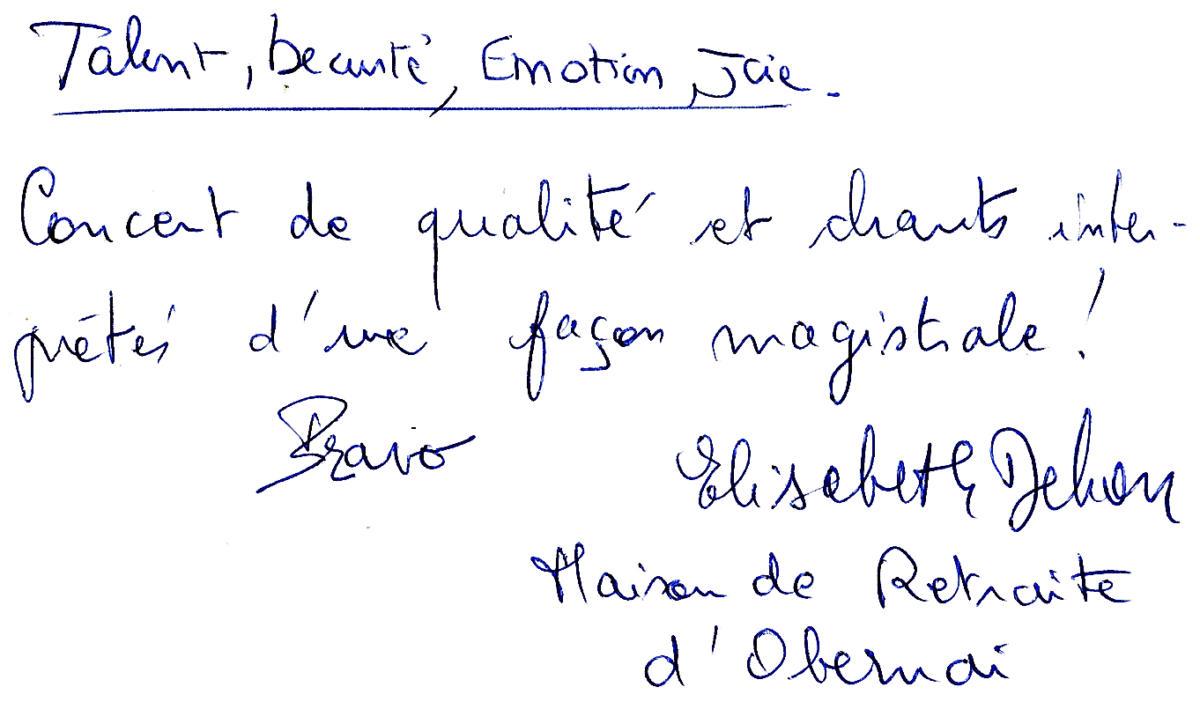 Talent, beauté, Emotion, Joie.
Concert de qualité et chants inter-
prétés d'une façon magistrale !
Bravo Elisabeth Dehon
Maison de Retraite
d'Obernai